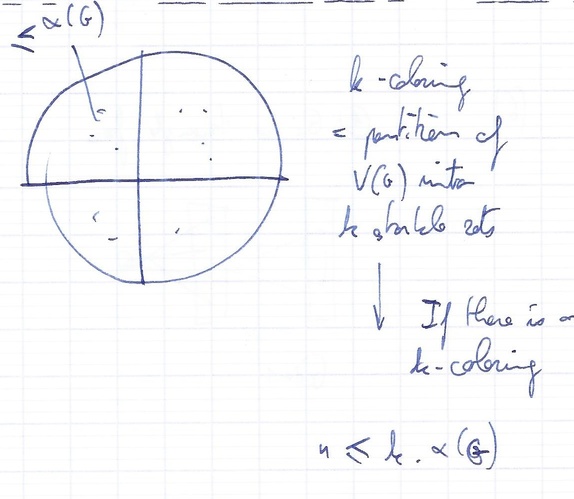 ≤ α(G)
k-coloring
= partition of
V(G) into
k stable sets
If there is a
k-coloring
n ≤ k . α(G)